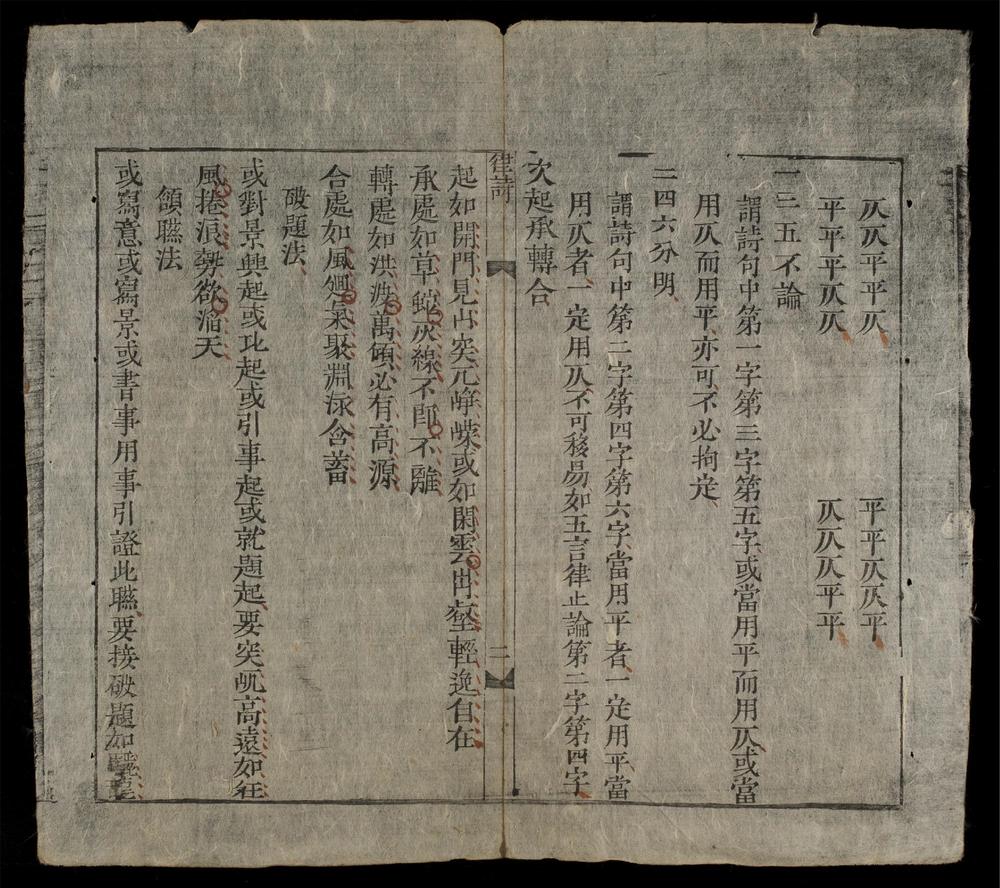 仄仄平平仄 平平仄仄平
平平平仄仄 仄仄仄平平
一三五不論
謂詩句中第一字第三字第五字或當用平而用仄或當
用仄而用平亦可不必拘定
二四六分明
謂詩句中第二字第四字第六字當用平者一定用平當
用仄者一定用仄不可移易如五言律止論第二字第四字
次起承轉合
律詩 二
起如開門見山突兀崢嶸或如閑雲出壑輕逸自在
承處如草蛇灰線不即不離
轉處如洪波萬頃必有高源
合處如風廻氣聚淵泳含蓄
破題法
或對景興起或比起或引事起或就題起要突兀高遠如狂
風捲浪勢欲滔天
頷聯法
或寫意或寫景或書事用事引證此聯要接破題如驪龍